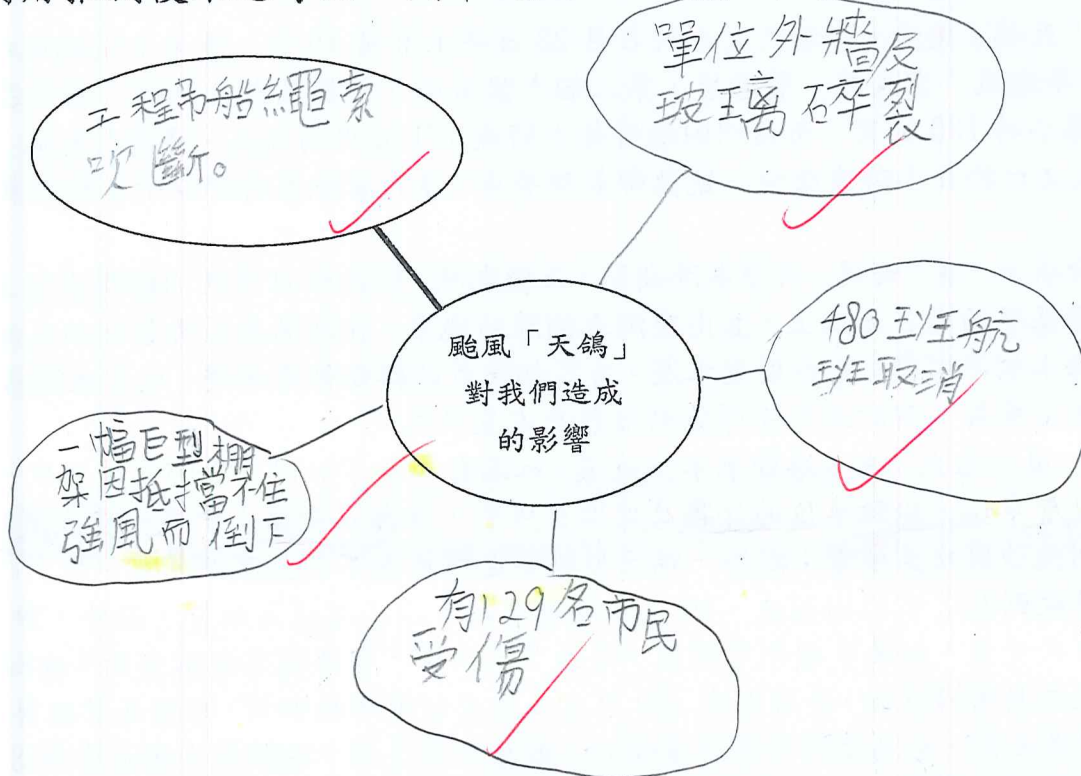 工程吊船繩索
吹斷。
單位外牆及
玻璃碎裂
颱風「天鴿」
對我們造成
的影響
480班航
班取消
一幅巨型棚
架因抵擋不住
強風而倒下
有129名市民
受傷